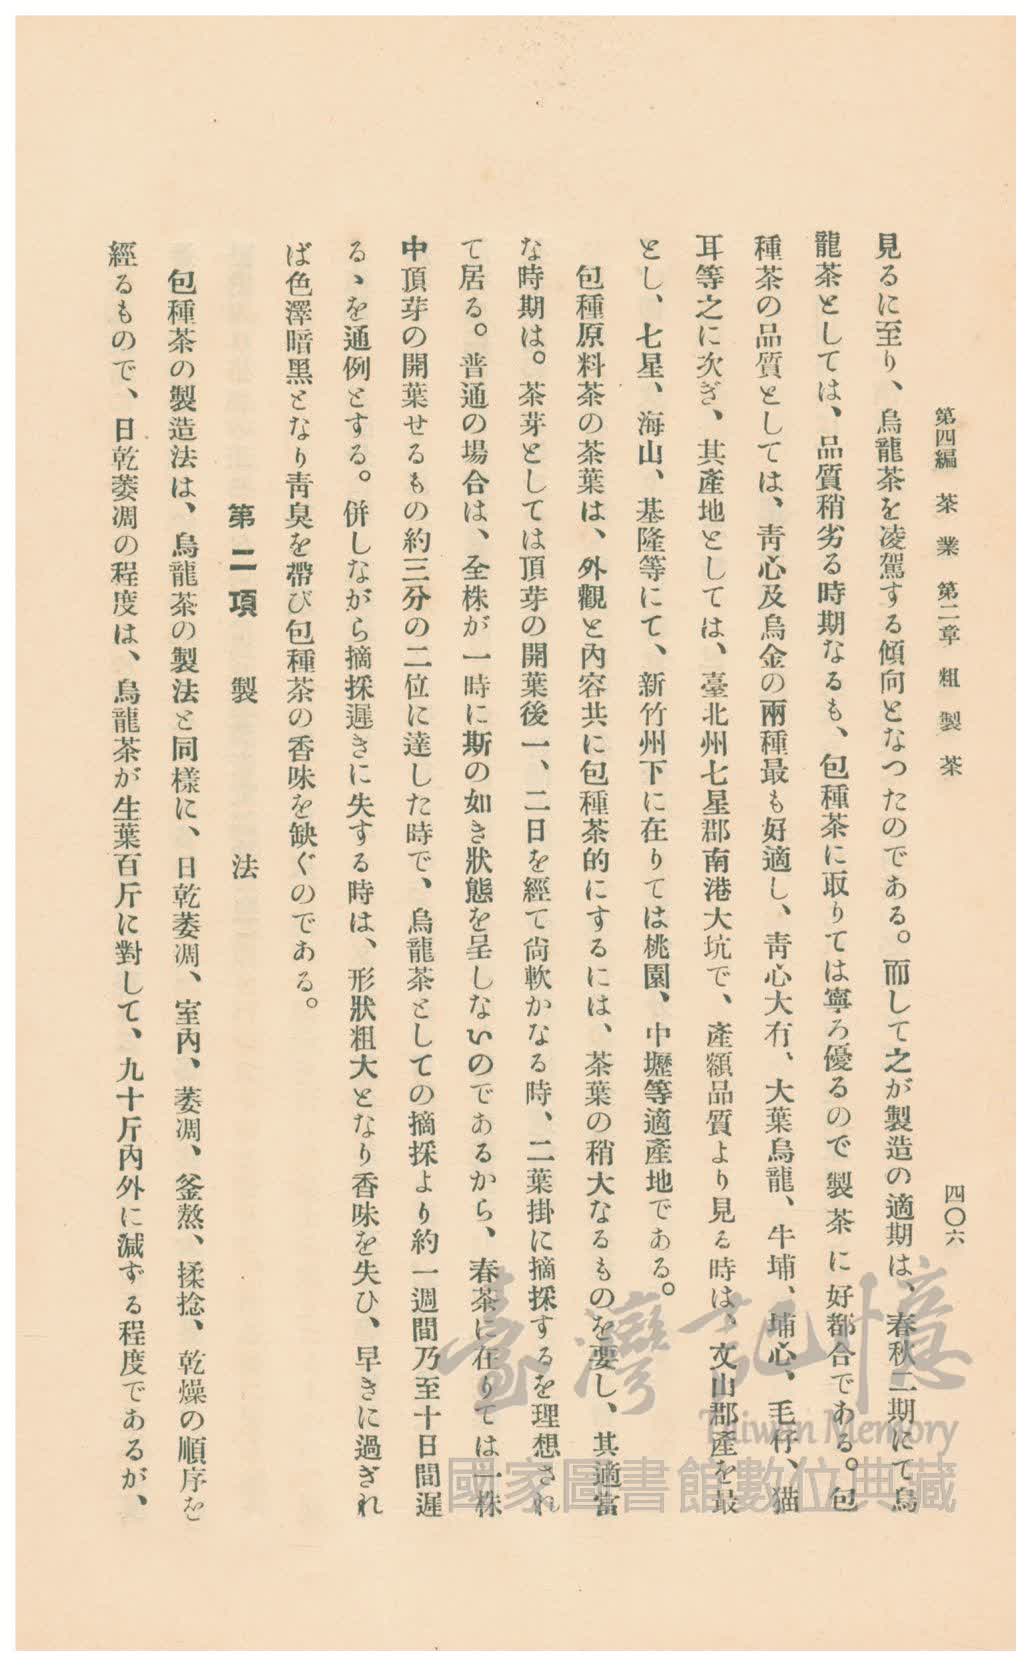 第四編 茶業 第二章 粗製茶
四〇六
見るに至り、烏龍茶を凌駕する傾向となつたのである。而して之が製造の適期は、春秋二期にて烏
龍茶としては、品質稍劣る時期なるも、包種茶に取りては寧ろ優るので製茶に好都合である。包
種茶の品質としては、靑心及烏金の兩種最も好適し、靑心大冇、大葉烏龍、牛埔、埔心、毛仔、猫
耳等之に次ぎ、其產地としては、臺北州七星郡南港大坑で、產額品質より見る時は、文山郡產を最
とし、七星、海山、基隆等にて、新竹州下に在りては桃園、中壢等適產地である。
包種原料茶の茶葉は、外觀と內容共に包種茶的にするには、茶葉の稍大なるものを要し、其適當
な時期は。茶芽としては頂芽の開葉後一、二日を經て尙軟かなる時、二葉掛に摘採するを理想され
て居る。普通の場合は、全株が一時に斯の如き狀態を呈しないのであるから、春茶に在りては一株
中頂芽の開葉せるもの約三分の二位に達した時で、烏龍茶としての摘採より約一週間乃至十日間遲
るゝを通例とする。併しながら摘採遲きに失する時は、形狀粗大となり香味を失ひ、早きに過ぎれ
ば色澤暗黑となり靑臭を帶び包種茶の香味を缺ぐのである。
第二項 製法
包種茶の製造法は、烏龍茶の製法と同樣に、日乾萎凋、室內、萎凋、釜熬、揉捻、乾燥の順序を
經るもので、日乾萎凋の程度は、烏龍茶が生葉百斤に對して、九十斤內外に減ずる程度であるが、
臺灣記憶
Taiwan Memory
國家圖書館數位典藏